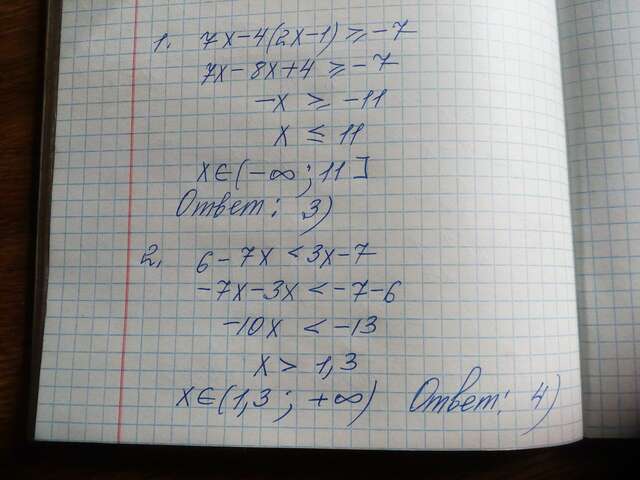 1. 7x-4(2x-1) ≥ -7
7x-8x+4 ≥ -7
-x ≥ -11
x ≤ 11
x∈(-∞; 11]
Ответ: 3)
2. 6-7x < 3x-7
-7x-3x < -7-6
-10x < -13
x > 1,3
x∈(1,3; +∞) Ответ: 4)